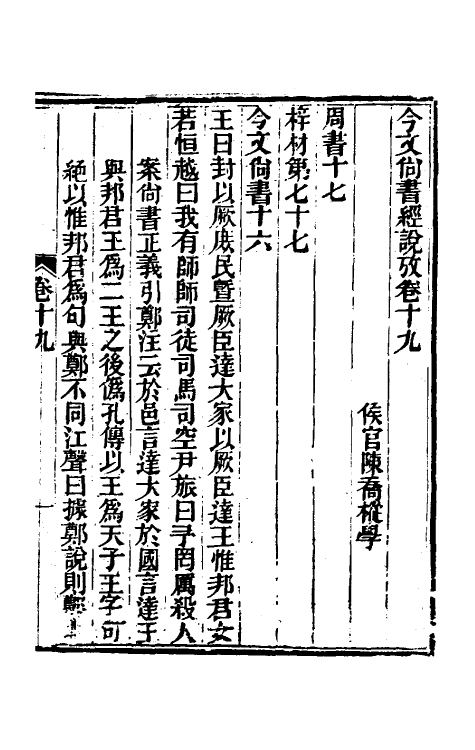 今文尙書經說攷卷十九
侯官陳喬樅學
周書十七
梓材第七十七
今文尙書十六
王曰封以厥庶民暨厥臣達大家以厥臣達王惟邦君女
若恒越曰我有師師司徒司馬司空尹旅曰予罔厲殺人
案尙書正義引鄭注云於邑言達大家於國言達王
與邦君王爲二王之後僞孔傳以王爲天子王字可
絕以惟邦君爲句與鄭不同江聲曰據鄭說則經
卷十九
一